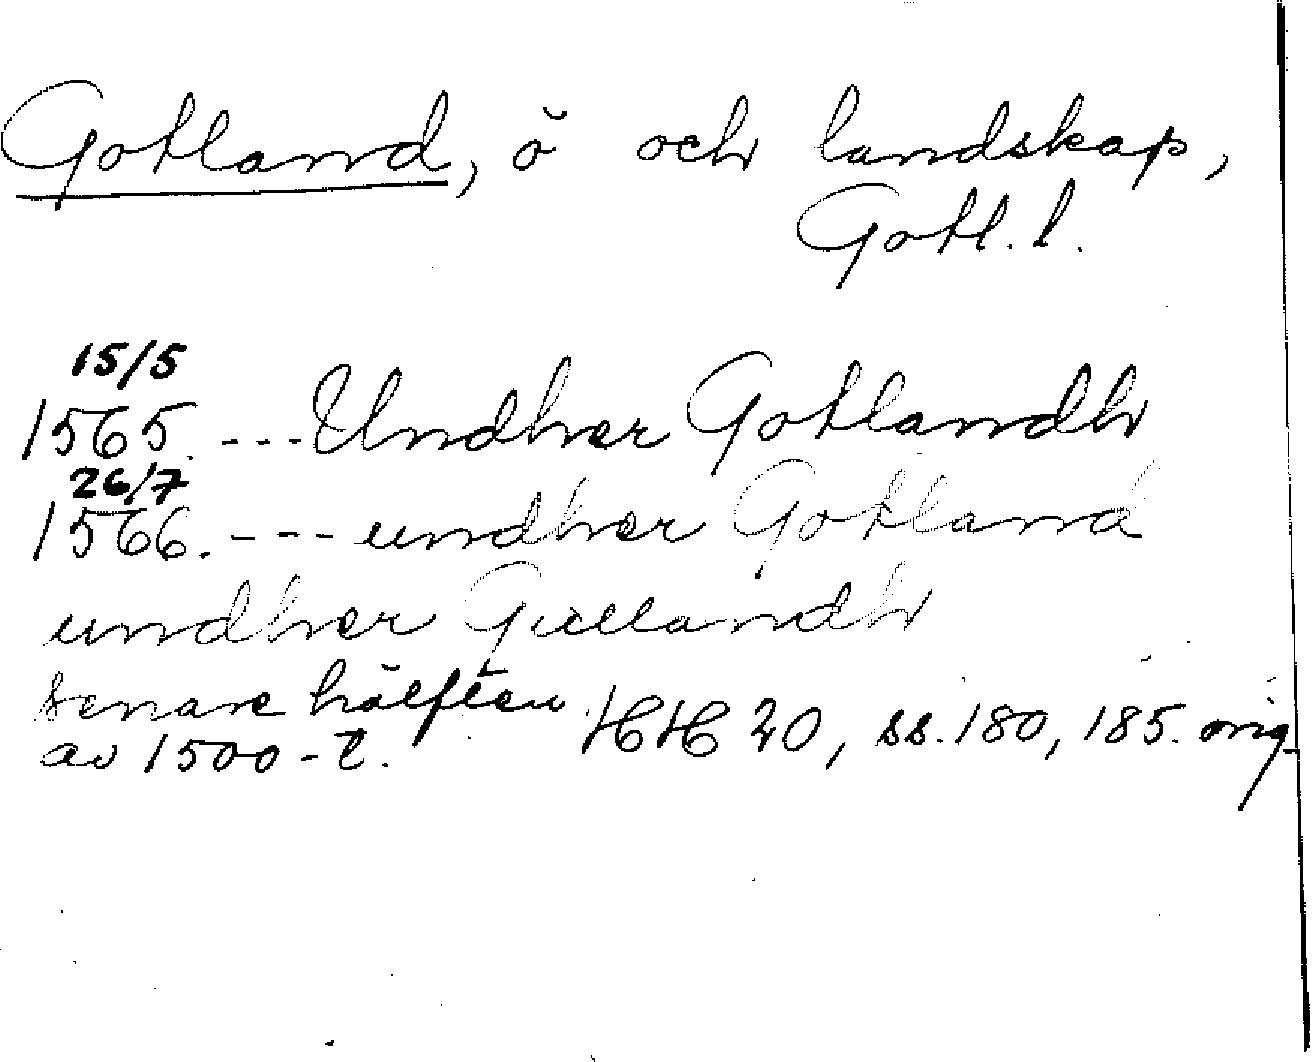 Gotland, ö och landskap,
Gotl. l.
15/5
1565. ---Undher Gotlandh
26/7
1566. ---undher Gotland
undher Gullandh
senare hälften HH 20, ss. 180, 185. orig.
av 1500-t.